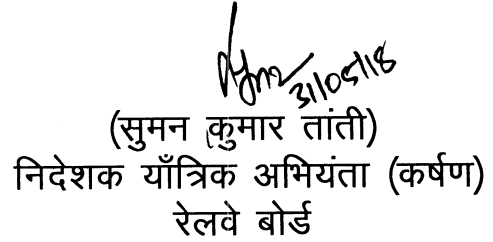 31/05/18
(सुमन कुमार तांती)
निदेशक याँत्रिक अभियंता (कर्षण)
रेलवे बोर्ड